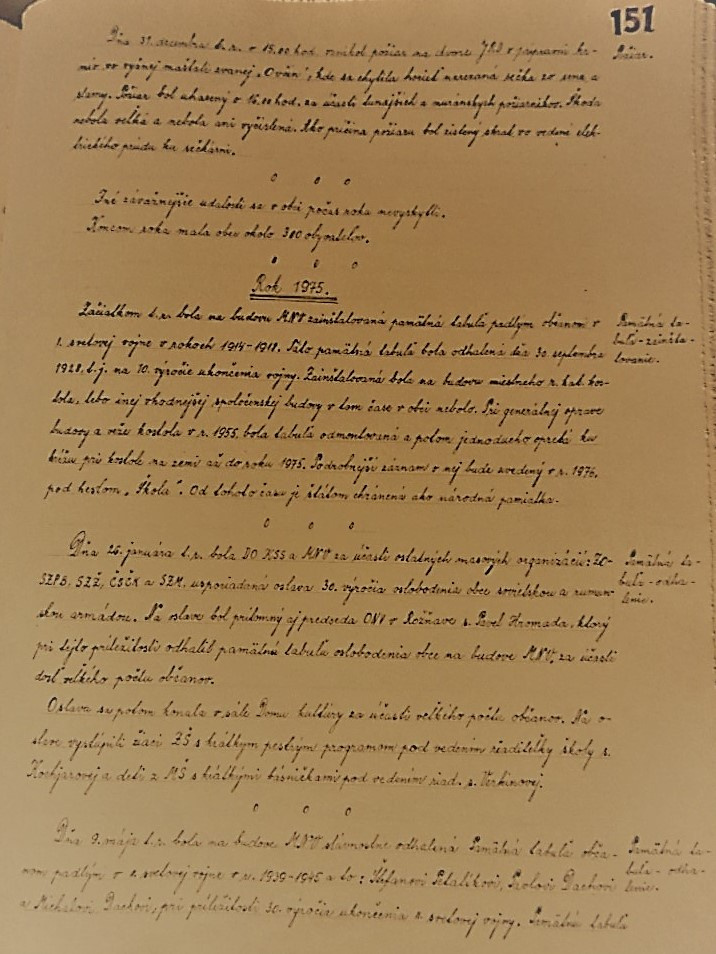 151
Dňa 31. decembra t.r. o 15,00 hod. vznikol požiar na dvore JRD v prípravni kr-
mív vo vyšnej maštali zvanej „Ovčín", kde sa chytila horieť narezaná sečka zo sena a
slamy. Požiar bol uhasený o 16.00 hod. za účasti tunajších a muránskych požiarnikov. Škoda
nebola veľká a nebola ani vyčíslená. Ako príčina požiaru bol zistený skrat vo vedení elek-
trického prúdu ku sečkárni.
Požiar.
Iné závažnejšie udalosti sa v obci počas roka nevyskytli.
Koncom roka mala obec okolo 380 obyvateľov.
Rok 1975.
Začiatkom t.r. bola na budovu MNV zainštalovaná pamätná tabuľa padlým občanom v
1. svetovej vojne v rokoch 1914-1918. Táto pamätná tabuľa bola odhalená dňa 30. septembra
1928, t.j. na 10. výročie ukončenia vojny. Zainštalovaná bola na budovu miestneho r. kat. kos-
tola, lebo inej vhodnejšej spoločenskej budovy v tom čase v obci nebolo. Pri generálnej oprave
budovy a veže kostola v r. 1955, bola tabuľa odmontovaná a potom jednoducho opretá ku
krížu pri kostole na zemi až do roku 1975. Podrobnejší záznam o nej bude uvedený v r. 1976,
pod heslom „Škola". Od tohoto času je štátom chránená ako národná pamiatka.
Pamätná ta-
buľa-zainšta-
lovanie.
Dňa 26. januára t.r. bola DO KSS a MNV za účasti ostatných masových organizácií: ZO-
SZPB, SZŽ, ČSČK a SZM, usporiadaná oslava 30. výročia oslobodenia obce sovietskou a rumun-
skou armádou. Na oslave bol prítomný aj predseda ONV v Rožňave s. Pavel Hromada, ktorý
pri tejto príležitosti odhalil pamätnú tabuľu oslobodenia obce na budove MNV, za účasti
dosť veľkého počtu občanov.
Pamätná ta-
buľa-odha-
lenie.
Oslava sa potom konala v sále Domu kultúry za účasti veľkého počtu občanov. Na o-
slave vystúpili žiaci ZŠ s krátkym pestrým programom pod vedením riaditeľky školy s.
a deti z MŠ s krátkymi básničkami pod vedením riad. s.
Dňa 9. mája t.r. bola na budove MNV slávnostne odhalená Pamätná tabuľa obča-
nom padlým v 2. svetovej vojne v r. 1939-1945 a to: Štefanovi Petalíkovi, Pavlovi Dachovi
a Michalovi Dachovi, pri príležitosti 30. výročia ukončenia 2. svetovej vojny. Pamätná tabuľa
Pamätná ta-
buľa-odha-
lenie.